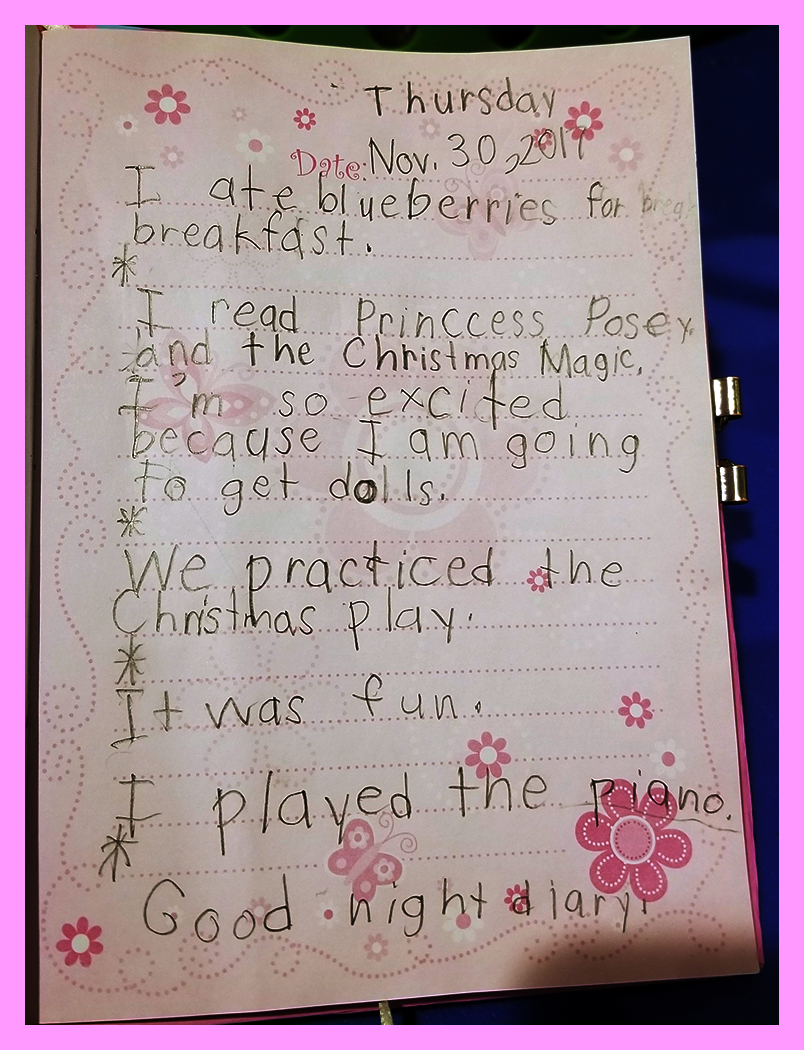 Thursday
Date: Nov. 30, 2017
I ate blueberries for break
breakfast.
*
I read Princcess Posey
and the Christmas Magic.
I'm so excited
because I am going
to get dolls.
*
We practiced the
Christmas play.
*
It was fun.
I played the piano.
*
Good night diary!